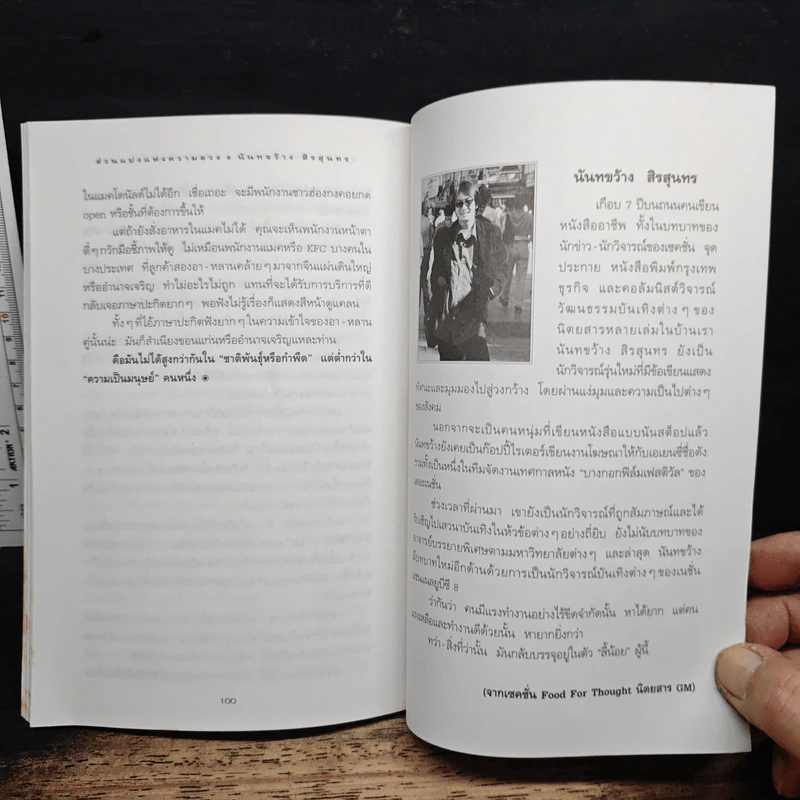 ส่วนแบ่งแห่งความลวง นันทขว้าง สิรสุนทร
ในแมคโดนัลด์ไม่ได้อีก เชื่อเถอะ จะมีพนักงานชาวฮ่องกงคอยกด
open หรือชั้นที่ต้องการขึ้นให้
แต่ถ้ายังสั่งอาหารในแมคไม่ได้ คุณจะเห็นพนักงานหน้าตา
ตี๋ๆ กวักมือชี้ภาพให้ดู ไม่เหมือนพนักงานแมคหรือ KFC บางคนใน
บางประเทศ ที่ลูกค้าสองอา - หลานคล้ายๆ มาจากจีนแผ่นดินใหญ่
หรืออำนาจเจริญ ทำไมอะไรไม่ถูก แทนที่จะได้รับการบริการที่ดี
กลับเจอภาษาปะกิตยากๆ พอฟังไม่รู้เรื่องก็แสดงสีหน้าดูแคลน
ทั้งๆ ที่ไอ้ภาษาปะกิตฟังยากๆ ในความเข้าใจของอา - หลาน
คู่นั้นน่ะ มันก็สำเนียงขอนแก่นหรืออำนาจเจริญแหละท่าน
คือมันไม่ได้สูงกว่ากันใน "ชาติพันธุ์หรือกำพืด" แต่ต่ำกว่าใน
"ความเป็นมนุษย์" คนหนึ่ง
100
นันทขว้าง สิรสุนทร
เกือบ 7 ปีบนถนนคนเขียน
หนังสืออาชีพ ทั้งในบทบาทของ
นักข่าว - นักวิจารณ์ของเซคชั่น จุด
ประกาย หนังสือพิมพ์กรุงเทพ
ธุรกิจ และคอลัมนิสต์วิจารณ์
วัฒนธรรมบันเทิงต่างๆ ของ
นิตยสารหลายเล่มในบ้านเรา
นันทขว้าง สิรสุนทร ยังเป็น
นักวิจารณ์รุ่นใหม่ที่มีข้อเขียนแสดง
ทัศนะและมุมมองไปสู่วงกว้าง โดยผ่านแง่มุมและความเป็นไปต่างๆ
ของสังคม
นอกจากจะเป็นคนหนุ่มที่เขียนหนังสือแบบนันสต็อปแล้ว
นันทขว้างยังเคยเป็นก๊อปปี้ไรเตอร์เขียนงานโฆษณาให้กับเอเยนซี่ชื่อดัง
รวมทั้งเป็นหนึ่งในทีมจัดงานเทศกาลหนัง "บางกอกฟิล์มเฟสติวัล" ของ
เดอะเนชั่น
ช่วงเวลาที่ผ่านมา เขายังเป็นนักวิจารณ์ที่ถูกสัมภาษณ์และได้
รับเชิญไปเสวนาบันเทิงในหัวข้อต่างๆ อย่างถี่ยิบ ยังไม่นับบทบาทของ
อาจารย์บรรยายพิเศษตามมหาวิทยาลัยต่างๆ และล่าสุด นันทขว้าง
มีบทบาทใหม่อีกด้านด้วยการเป็นนักวิจารณ์บันเทิงต่างๆ ของเนชั่น
แชนแนลยูบีซี 8
ว่ากันว่า คนมีแรงทำงานอย่างไร้ขีดจำกัดนั้น หาได้ยาก แต่คน
แรงเหลือและทำงานดีด้วยนั้น หายากยิ่งกว่า
ทว่า - สิ่งที่ว่านั้น มันกลับบรรจุอยู่ในตัว "ลี้น้อย" ผู้นี้
(จากเซคชั่น Food For Thought นิตยสาร GM)